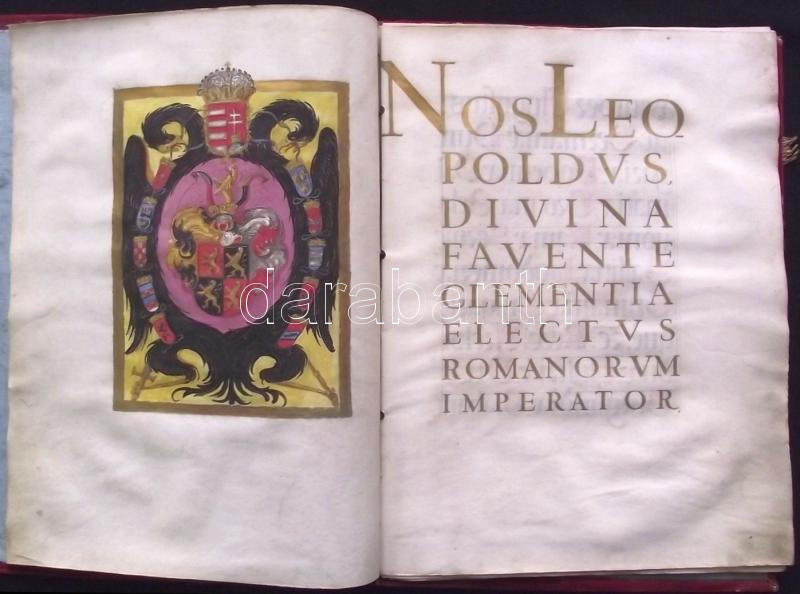 NOS LEO
POLDVS,
DIVINA
FAVENTE
CLEMENTIA
ELECTVS
ROMANORVM
IMPERATOR,
darabanth